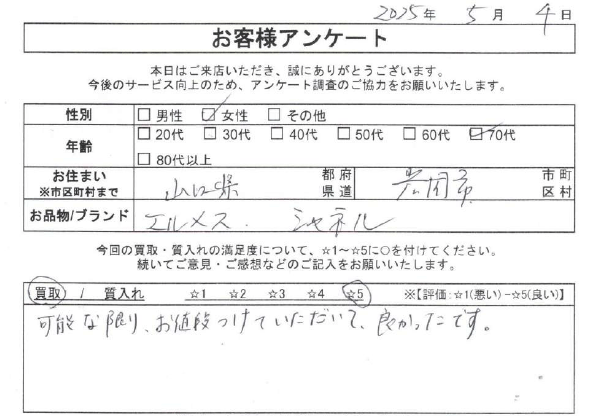 2025年 5月 4日
お客様アンケート
本日はご来店いただき、誠にありがとうございます。
今後のサービス向上のため、アンケート調査のご協力をお願いいたします。
性別 □ 男性 ☑ 女性 □ その他
年齢 □ 20代 □ 30代 □ 40代 □ 50代 □ 60代 ☑ 70代
□ 80代以上
お住まい ※市区町村まで 山口県 都府県道 岩国市 市町区村
お品物/ブランド エルメス. シャネル
今回の買取・質入れの満足度について、☆1～☆5に○を付けてください。
続いてご意見・ご感想などのご記入をお願いいたします。
買取 / 質入れ ☆1 ☆2 ☆3 ☆4 ☆5 ※【評価:☆1(悪い)-☆5(良い)】
可能な限り、お値段つけていただいて、良かったです。